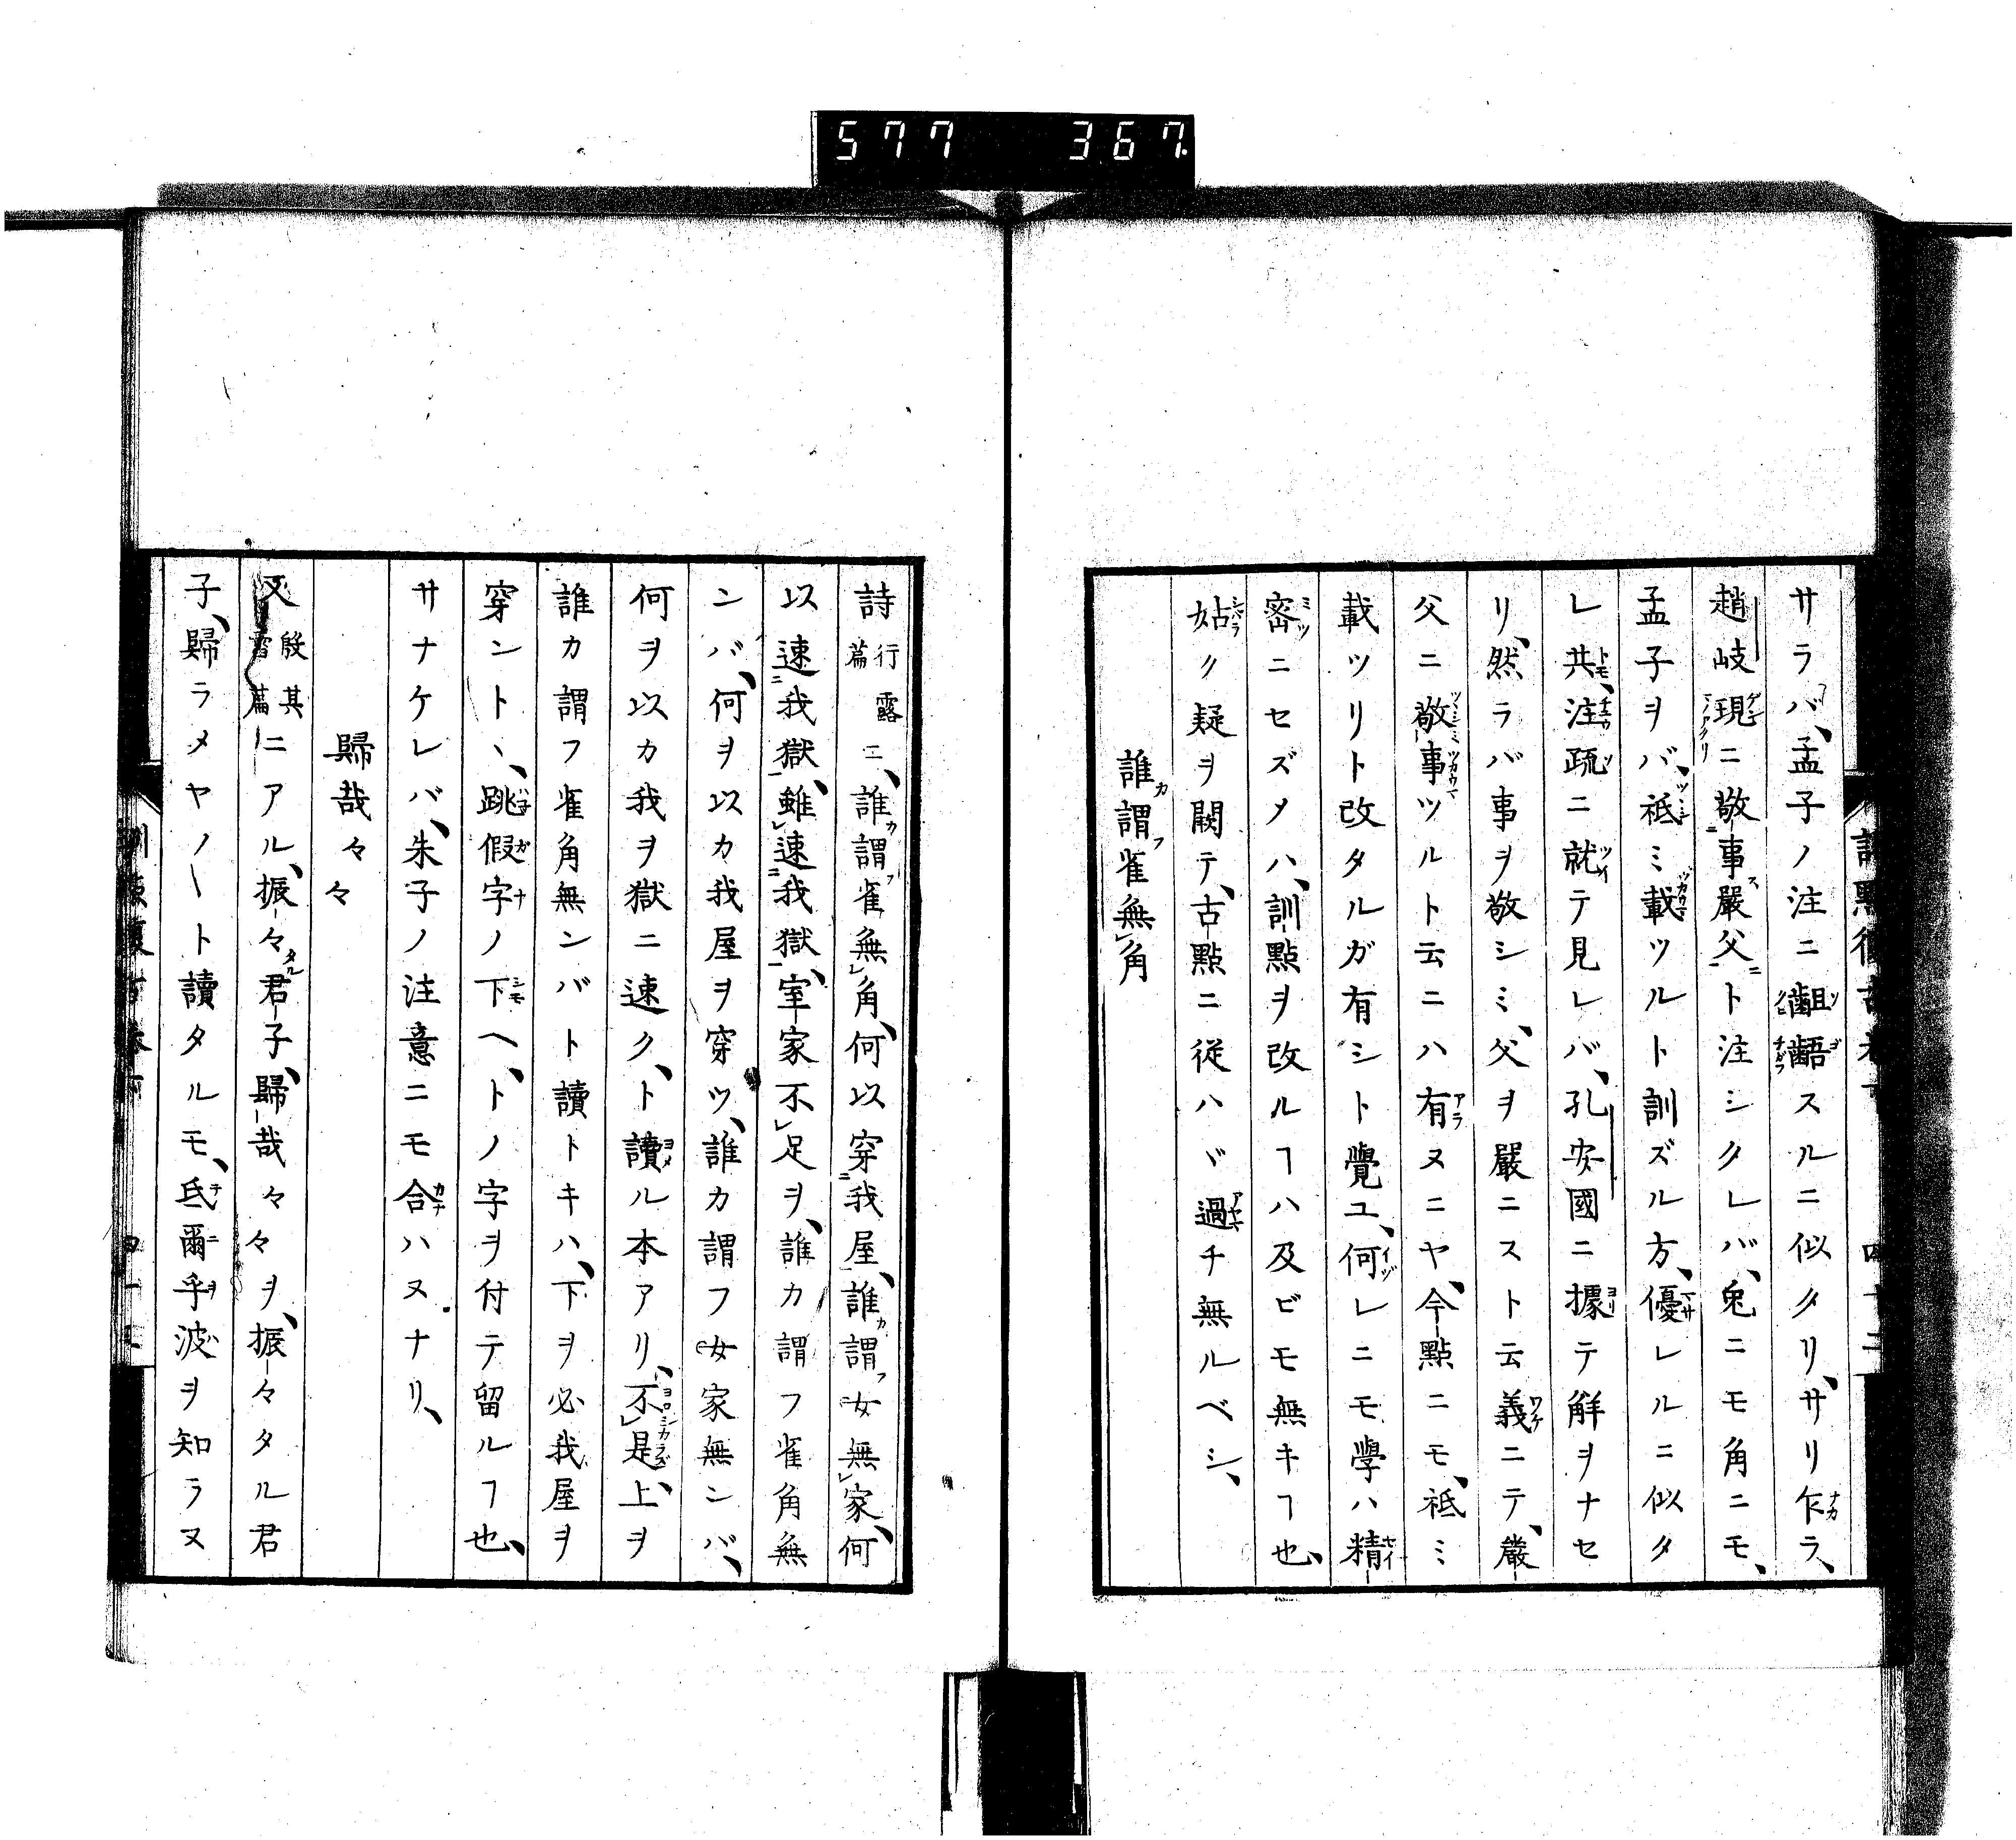 577 367.
サラバ、孟子ノ注ニ齟齬スルニ似タリ、サリ乍ラ、
趙岐現ニ敬事嚴父ト注シタレバ、兎ニモ角ニモ、
孟子ヲバ、祗ミ載ツルト訓ズル方、優レルニ似タ
レ共、注疏ニ就テ見レバ、孔安國ニ據テ解ヲナセ
リ、然ラバ事ヲ敬シミ、父ヲ嚴ニスト云義ニテ、嚴
父ニ敬事ツルト云ニハ有ヌニヤ、今點ニモ、祗ミ
載ツリト改タルガ有シト覺ユ、何レニモ學ハ精
密ニセズメハ、訓點ヲ改ルヿハ及ビモ無キヿ也、
姑ク疑ヲ闕テ、古點ニ従ハヾ過チ無ルベシ、
誰謂雀無角
詩行露篇ニ、誰謂雀無角、何以穿我屋、誰謂女無家、何
以速我獄、雖速我獄、室家不足ヲ、誰カ謂フ雀角無
ンバ、何ヲ以カ我屋ヲ穿ツ、誰カ謂フ女家無ンバ、
何ヲ以カ我ヲ獄ニ速ク、ト讀ル本アリ、不是、上ヲ
誰カ謂フ雀角無ンバト讀トキハ、下ヲ必我屋ヲ
穿ント、跳假字ノ下ヘ、トノ字ヲ付テ留ルヿ也、
サナケレバ、朱子ノ注意ニモ合ハヌナリ、
歸哉々々
又殷其雷篇ニアル、振々君子、歸哉々々ヲ、振々タル君
子、歸ラメヤ〳〵ト讀タルモ、氐爾乎波ヲ知ラヌ